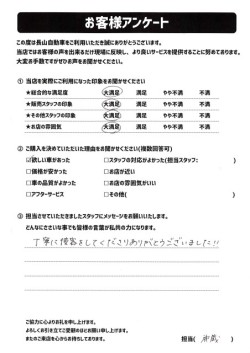 お客様アンケート
この度は長山自動車をご利用いただき誠にありがとうございます。
当店ではお客様の声を出来るだけ現場に反映し、より良いサービスを提供することに努めております。
大変お手数ですがぜひお声をお聞かせください。
① 当店を実際にご利用になった印象をお聞かせください
★総合的な満足度 大満足 満足 やや不満 不満
★販売スタッフの印象 大満足 満足 やや不満 不満
★スタッフの印象 大満足 満足 やや不満 不満
★お店の雰囲気 大満足 満足 やや不満 不満
② ご購入を決めていただいた理由をお聞かせください(複数回答可)
☑欲しい車があった □スタッフの対応がよかった(担当スタッフ: )
□価格が安かった □お店が近い
□車の品質がよかった □お店の雰囲気がいい
□アフターサービス □その他( )
③ 担当させていただきましたスタッフにメッセージをお願いいたします。
どんなにささいな事でも皆様の言葉が私共の力になります。
丁寧に接客をしてくださりありがとうございました!!
ご協力に心よりお礼を申し上げます。
よろしくお引き立てご愛顧のほどお願い申し上げます。
またのご来店を心からお待ちしております。
担当( )